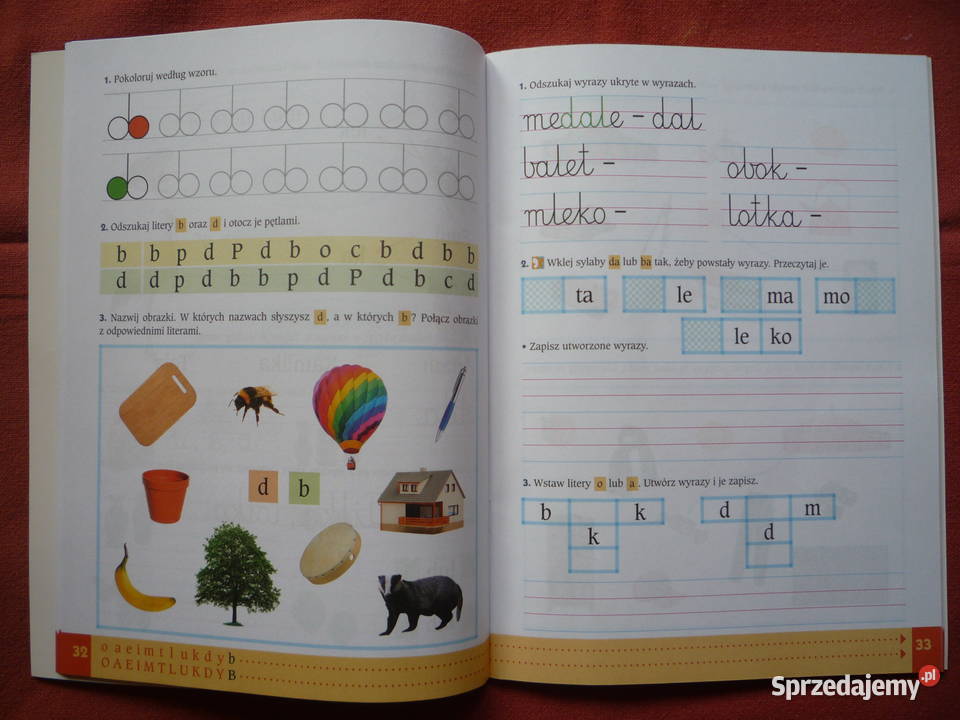 1. Pokoloruj według wzoru.
2. Odszukaj litery b oraz d i otocz je pętlami.
b b p d P d b o c b d b b
d d p d b b p d P d b c d
3. Nazwij obrazki. W których nazwach słyszysz d, a w których b? Połącz obrazki
z odpowiednimi literami.
d b
32
o a e i m t l u k d y b
O A E I M T L U K D Y B
1. Odszukaj wyrazy ukryte w wyrazach.
medale – dal
balet –
obok –
mleko –
lotka –
2. Wklej sylaby da lub ba tak, żeby powstały wyrazy. Przeczytaj je.
ta le ma mo
le ko
• Zapisz utworzone wyrazy.
3. Wstaw litery o lub a. Utwórz wyrazy i je zapisz.
b k d m
k d
33
Sprzedajemy.pl